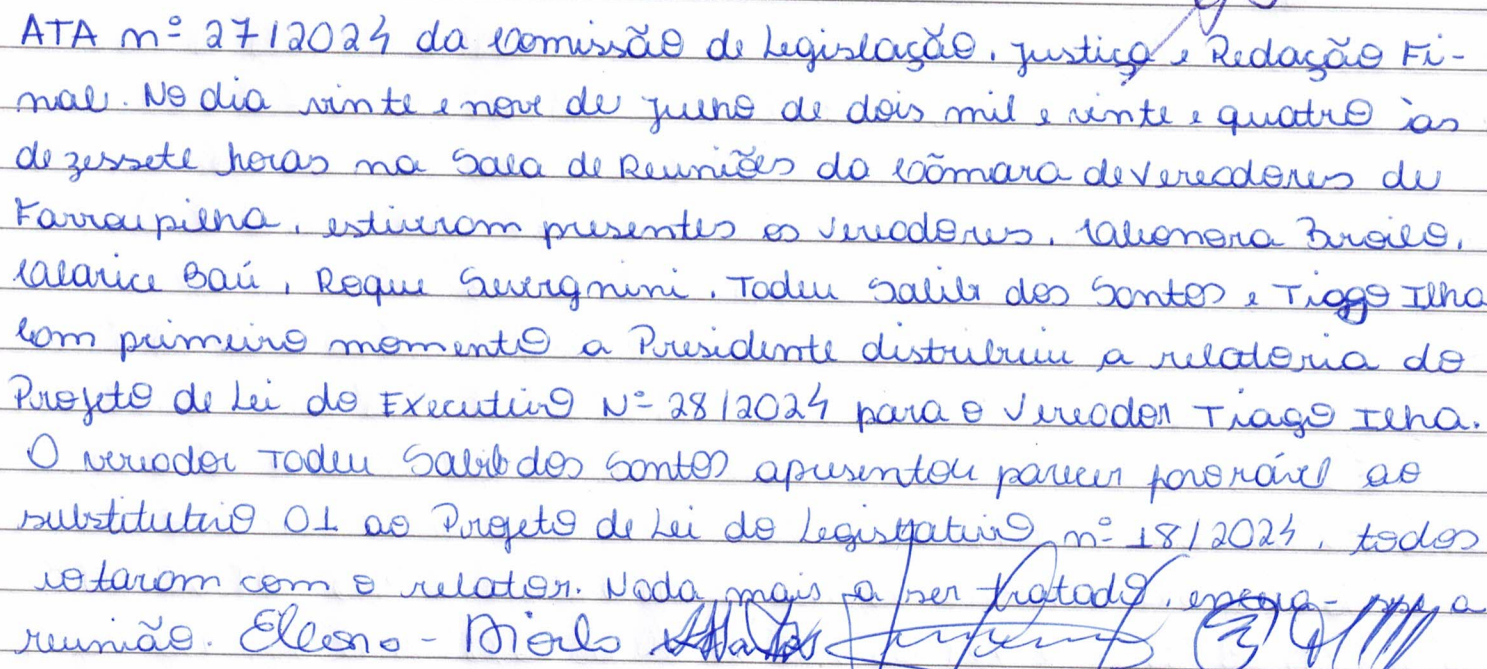 ATA nº 27/2024 da Comissão de Legislação, Justiça e Redação Fi-
nal. No dia vinte e nove de julho de dois mil e vinte e quatro às
dezessete horas na Sala de Reuniões da Câmara de Vereadores de
Farroupilha, estiveram presentes os vereadores, Calebnora Broilo,
Clarice Baú, Roque Severgnini, Tadeu Salib dos Santos e Tiago Ilha
Com primeiro momento a Presidente distribuiu a relatoria do
Projeto de Lei do Executivo Nº 28/2024 para o Vereador Tiago Ilha.
O vereador Tadeu Salib dos Santos apresentou parecer favorável ao
substitutivo 01 ao Projeto de Lei do Legislativo nº 18/2024, todos
votaram com o relator. Nada mais a ser tratado, encerra-se a
reunião.